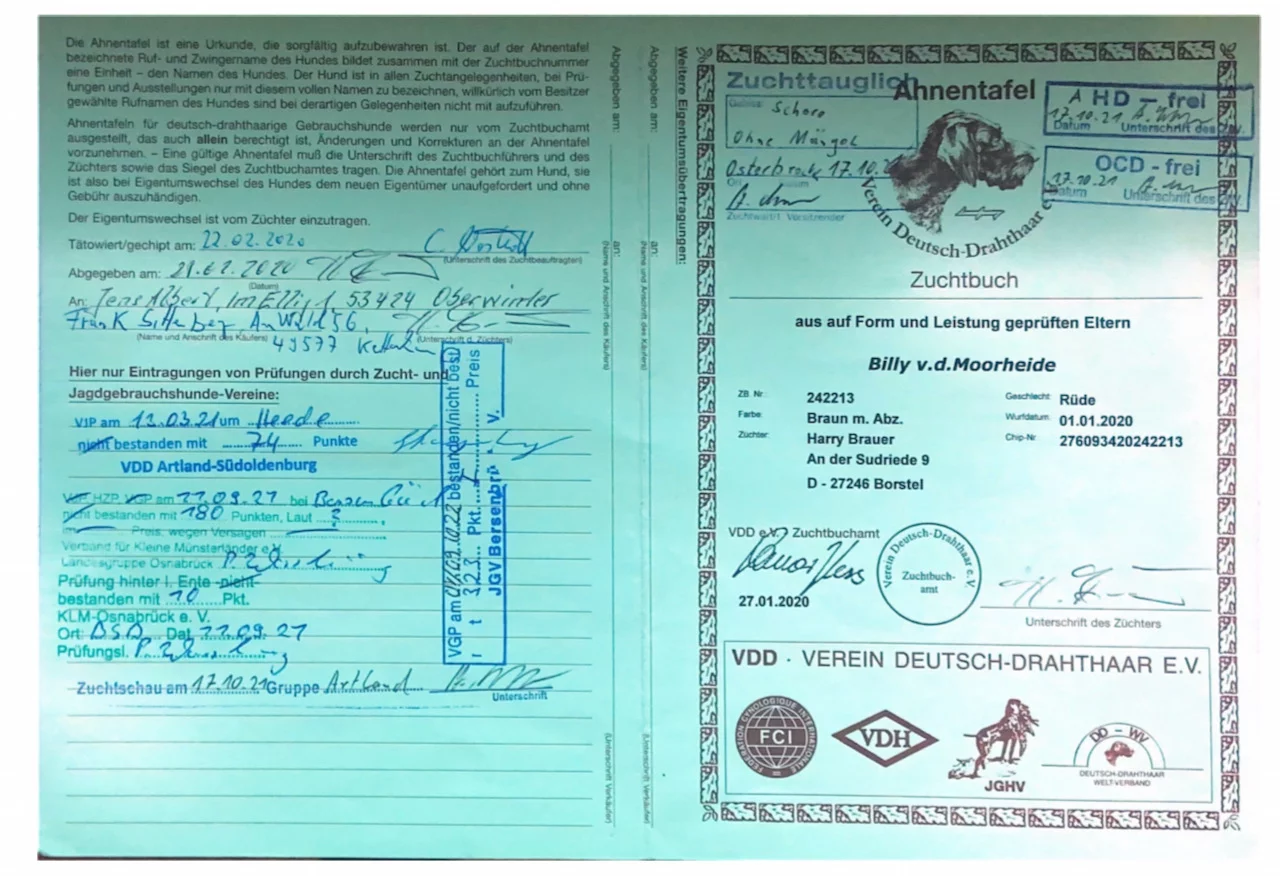 Die Ahnentafel ist eine Urkunde, die sorgfältig aufzubewahren ist. Der auf der Ahnentafel
bezeichnete Ruf- und Zwingername des Hundes bildet zusammen mit der Zuchtbuchnummer
eine Einheit – den Namen des Hundes. Der Hund ist in allen Zuchtangelegenheiten, bei Prü-
fungen und Ausstellungen nur mit diesem vollen Namen zu bezeichnen, willkürlich vom Besitzer
gewählte Rufnamen des Hundes sind bei derartigen Gelegenheiten nicht mit aufzuführen.
Ahnentafeln für deutsch-drahthaarige Gebrauchshunde werden nur vom Zuchtbuchamt
ausgestellt, das auch allein berechtigt ist, Änderungen und Korrekturen an der Ahnentafel
vorzunehmen. – Eine gültige Ahnentafel muß die Unterschrift des Zuchtbuchführers und des
Züchters sowie das Siegel des Zuchtbuchamtes tragen. Die Ahnentafel gehört zum Hund, sie
ist also bei Eigentumswechsel des Hundes dem neuen Eigentümer unaufgefordert und ohne
Gebühr auszuhändigen.
Der Eigentumswechsel ist vom Züchter einzutragen.
Tätowiert/gechipt am: 22.02.2020
(Unterschrift des Zuchtbeauftragten)
Abgegeben am: 29.02.2020
(Datum)
An: Jens Albert, Im Ellig 1, 53424 Oberwinter
Frank, Am Wald 56,
(Name und Anschrift des Käufers) 49577 (Unterschrift d. Züchters)
Hier nur Eintragungen von Prüfungen durch Zucht- und
Jagdgebrauchshunde-Vereine:
VJP am 13.03.21 um Heede
nicht bestanden mit 74 Punkte
VDD Artland-Südoldenburg
VJP HZP VGP am 11.09.21 bei
nicht bestanden mit 180 Punkten, Laut
Preis, wegen Versagen
Verband für Kleine Münsterländer e.V.
Landesgruppe Osnabrück
Prüfung hinter l. Ente nicht
bestanden mit 10 Pkt.
KLM-Osnabrück e. V.
Ort: BSB Dat. 11.09.21
Prüfungsl.
Zuchtschau am 17.10.21 Gruppe Artland
Unterschrift
VGP am 08./09.10.22 bestanden/nicht best
I t 323 Pkt. Preis
JGV Bersenbrück e. V.
Abgegeben am:
an:
(Name und Anschrift des Käufers)
(Unterschrift Verkäufer)
Abgegeben am:
an:
(Name und Anschrift des Käufers)
(Unterschrift Verkäufer)
Weitere Eigentumsübertragungen:
Zuchttauglich
Ohne Mängel
Osterbrock 17.10.
Zuchtwart/1. Vorsitzender
Ahnentafel
A HD – frei
17.10.21
Datum Unterschrift des
OCD - frei
17.10.21
Datum Unterschrift des
Verein Deutsch-Drahthaar e.V.
Zuchtbuch
aus auf Form und Leistung geprüften Eltern
Billy v.d.Moorheide
ZB Nr. 242213
Geschlecht: Rüde
Farbe: Braun m. Abz.
Wurfdatum: 01.01.2020
Züchter: Harry Brauer
Chip-Nr 276093420242213
An der Sudriede 9
D - 27246 Borstel
VDD e.V. Zuchtbuchamt
27.01.2020
Verein Deutsch-Drahthaar e.V.
Zuchtbuch-
amt
Unterschrift des Züchters
VDD · VEREIN DEUTSCH-DRAHTHAAR E.V.
FEDERATION CYNOLOGIQUE INTERNATIONALE
FCI
VDH
JGHV
DD – WV
DEUTSCH-DRAHTHAAR
WELTVERBAND